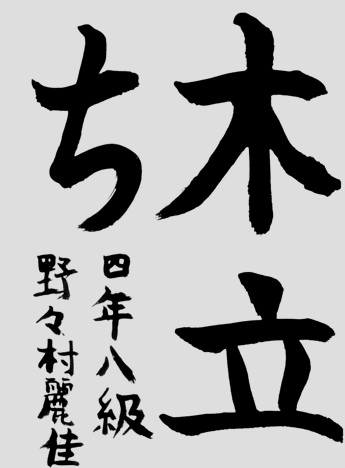 木立
ち
四年八級
野々村麗佳